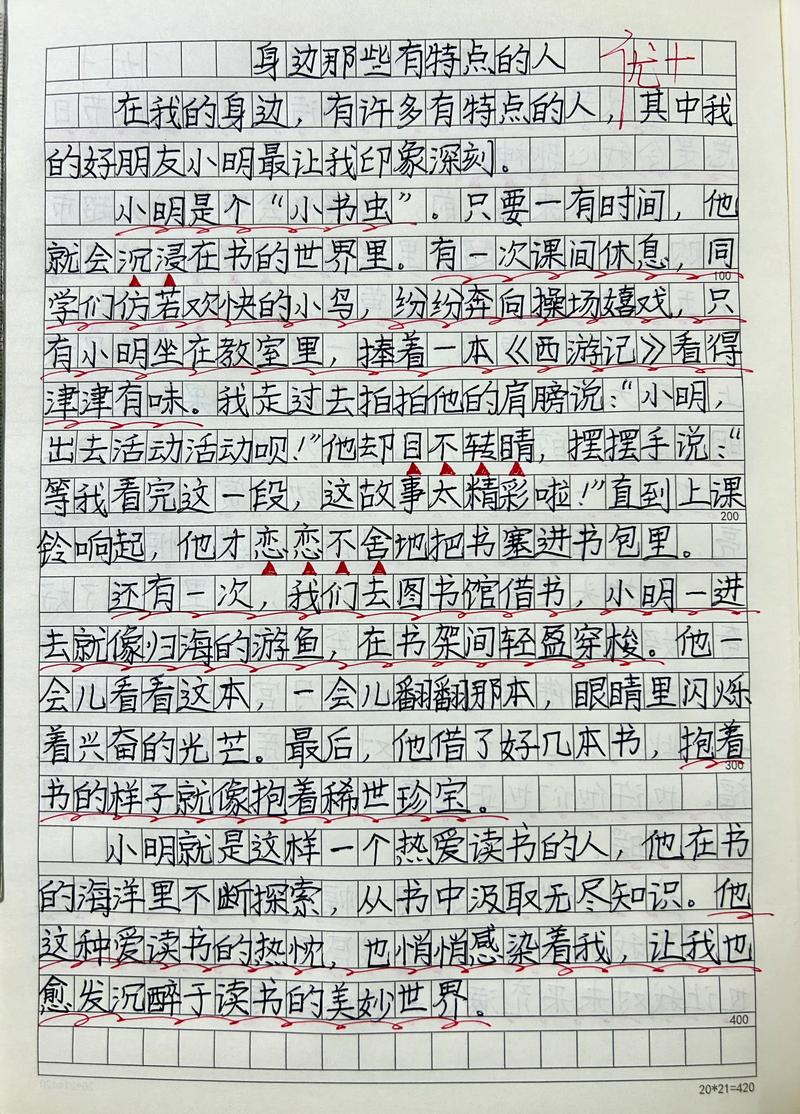 身边那些有特点的人
优+
在我的身边，有许多有特点的人，其中我
的好朋友小明最让我印象深刻。
小明是个“小书虫”。只要一有时间，他
就会沉浸在书的世界里。有一次课间休息，同
100
学们仿若欢快的小鸟，纷纷奔向操场嬉戏，只
有小明坐在教室里，捧着一本《西游记》看得
津津有味。我走过去拍拍他的肩膀说：“小明，
出去活动活动呗！”他却目不转睛，摆摆手说：“
等我看完这一段，这故事太精彩啦！”直到上课
200
铃响起，他才恋恋不舍地把书塞进书包里。
还有一次，我们去图书馆借书，小明一进
去就像归海的游鱼，在书架间轻盈穿梭。他一
会儿看看这本，一会儿翻翻那本，眼睛里闪烁
着兴奋的光芒。最后，他借了好几本书，抱着
300
书的样子就像抱着稀世珍宝。
小明就是这样一个热爱读书的人，他在书
的海洋里不断探索，从书中汲取无尽知识。他
这种爱读书的热忱，也悄悄感染着我，让我也
愈发沉醉于读书的美妙世界。
400
20*21=420